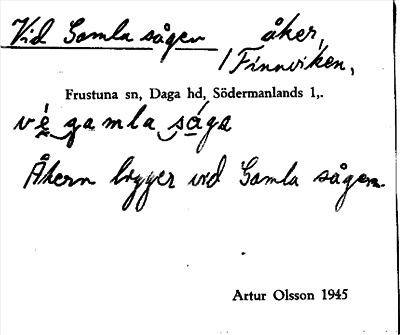 Vid Gamla sågen åker,
/ Finnviken,
Frustuna sn, Daga hd, Södermanlands l,.
vè gamla sága
Åkern ligger vid Gamla sågen.
Artur Olsson 1945